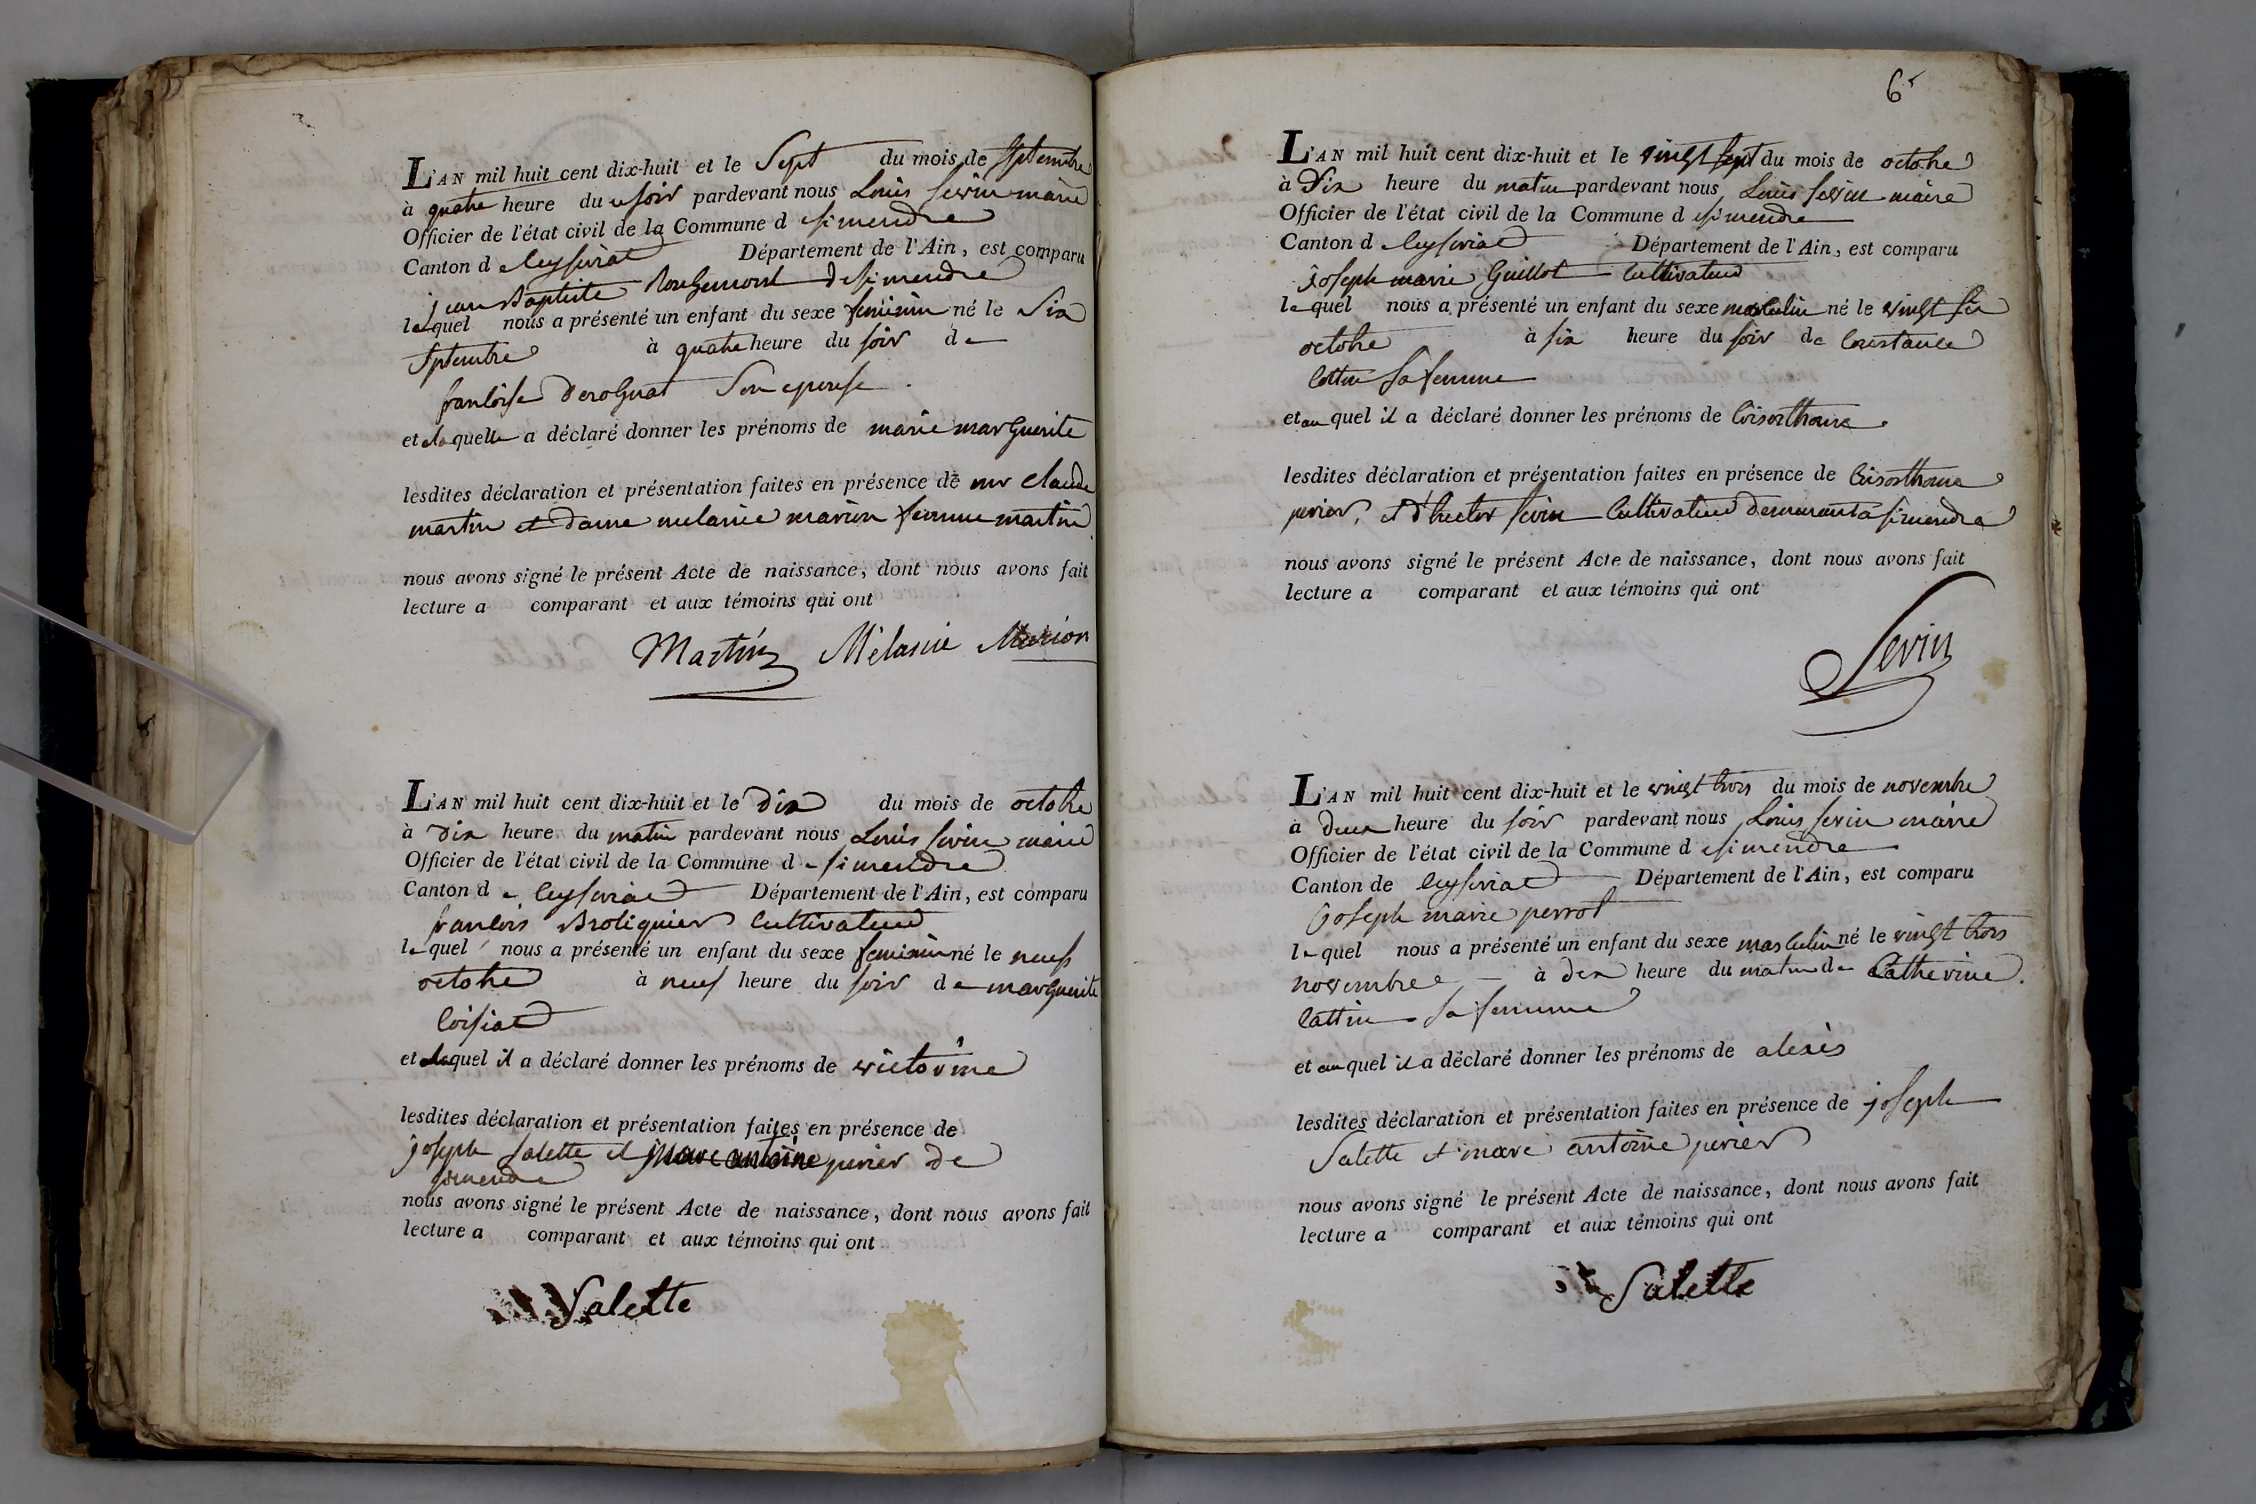 L'AN mil huit cent dix-huit et le Sept du mois de Septembre
à quatre heure du soir pardevant nous Louis Sevin maire
Officier de l'état civil de la Commune d e simendre
Canton d e Ceyseriat Département de l'Ain, est comparu
jean Baptiste Rougemont de simendre
lequel nous a présenté un enfant du sexe feminin né le Six
Septembre à quatre heure du soir de
françoise Deroguat Son epouse.
et a laquelle a déclaré donner les prénoms de marie marguerite
lesdites déclaration et présentation faites en présence de mr claude
martin et dame melanie marion femme martin
nous avons signé le présent Acte de naissance, dont nous avons fait
lecture a comparant et aux témoins qui ont
Martin Mélanie Marion
L'AN mil huit cent dix-huit et le Dix du mois de octobre
à dix heure du matin pardevant nous Louis Sevin maire
Officier de l'état civil de la Commune d e simendre
Canton d e Ceyseriat Département de l'Ain, est comparu
francois Broliquier Cultivateur
lequel nous a présenté un enfant du sexe feminin né le neuf
octobre à neuf heure du soir de marguerite
Loisiat
et quel il a déclaré donner les prénoms de victorine
lesdites déclaration et présentation faites en présence de
joseph Salette et marc antoine perier de
simendre
nous avons signé le présent Acte de naissance, dont nous avons fait
lecture a comparant et aux témoins qui ont
Salette
6
L'AN mil huit cent dix-huit et le vingt sept du mois de octobre
à Dix heure du matin pardevant nous Louis Sevin maire
Officier de l'état civil de la Commune d e simendre
Canton d e Ceyseriat Département de l'Ain, est comparu
joseph marie Guillot Cultivateur
lequel nous a présenté un enfant du sexe masculin né le vingt six
octobre à six heure du soir de Constance
Cottin Sa femme
et au quel il a déclaré donner les prénoms de Crisosthome.
lesdites déclaration et présentation faites en présence de Crisosthome
perier, et d'hector Sevin Cultivateur demeurant à simendre
nous avons signé le présent Acte de naissance, dont nous avons fait
lecture a comparant et aux témoins qui ont
Sevin
L'AN mil huit cent dix-huit et le vingt trois du mois de novembre
à deux heure du soir pardevant nous Louis Sevin maire
Officier de l'état civil de la Commune d e simendre
Canton de Ceyseriat Département de l'Ain, est comparu
joseph marie perrot
lequel nous a présenté un enfant du sexe masculin né le vingt trois
novembre à dix heure du matin de Catherine
Cattin Sa femme
et au quel il a déclaré donner les prénoms de alexis
lesdites déclaration et présentation faites en présence de joseph
Salette et marc antoine perier
nous avons signé le présent Acte de naissance, dont nous avons fait
lecture a comparant et aux témoins qui ont
Salette